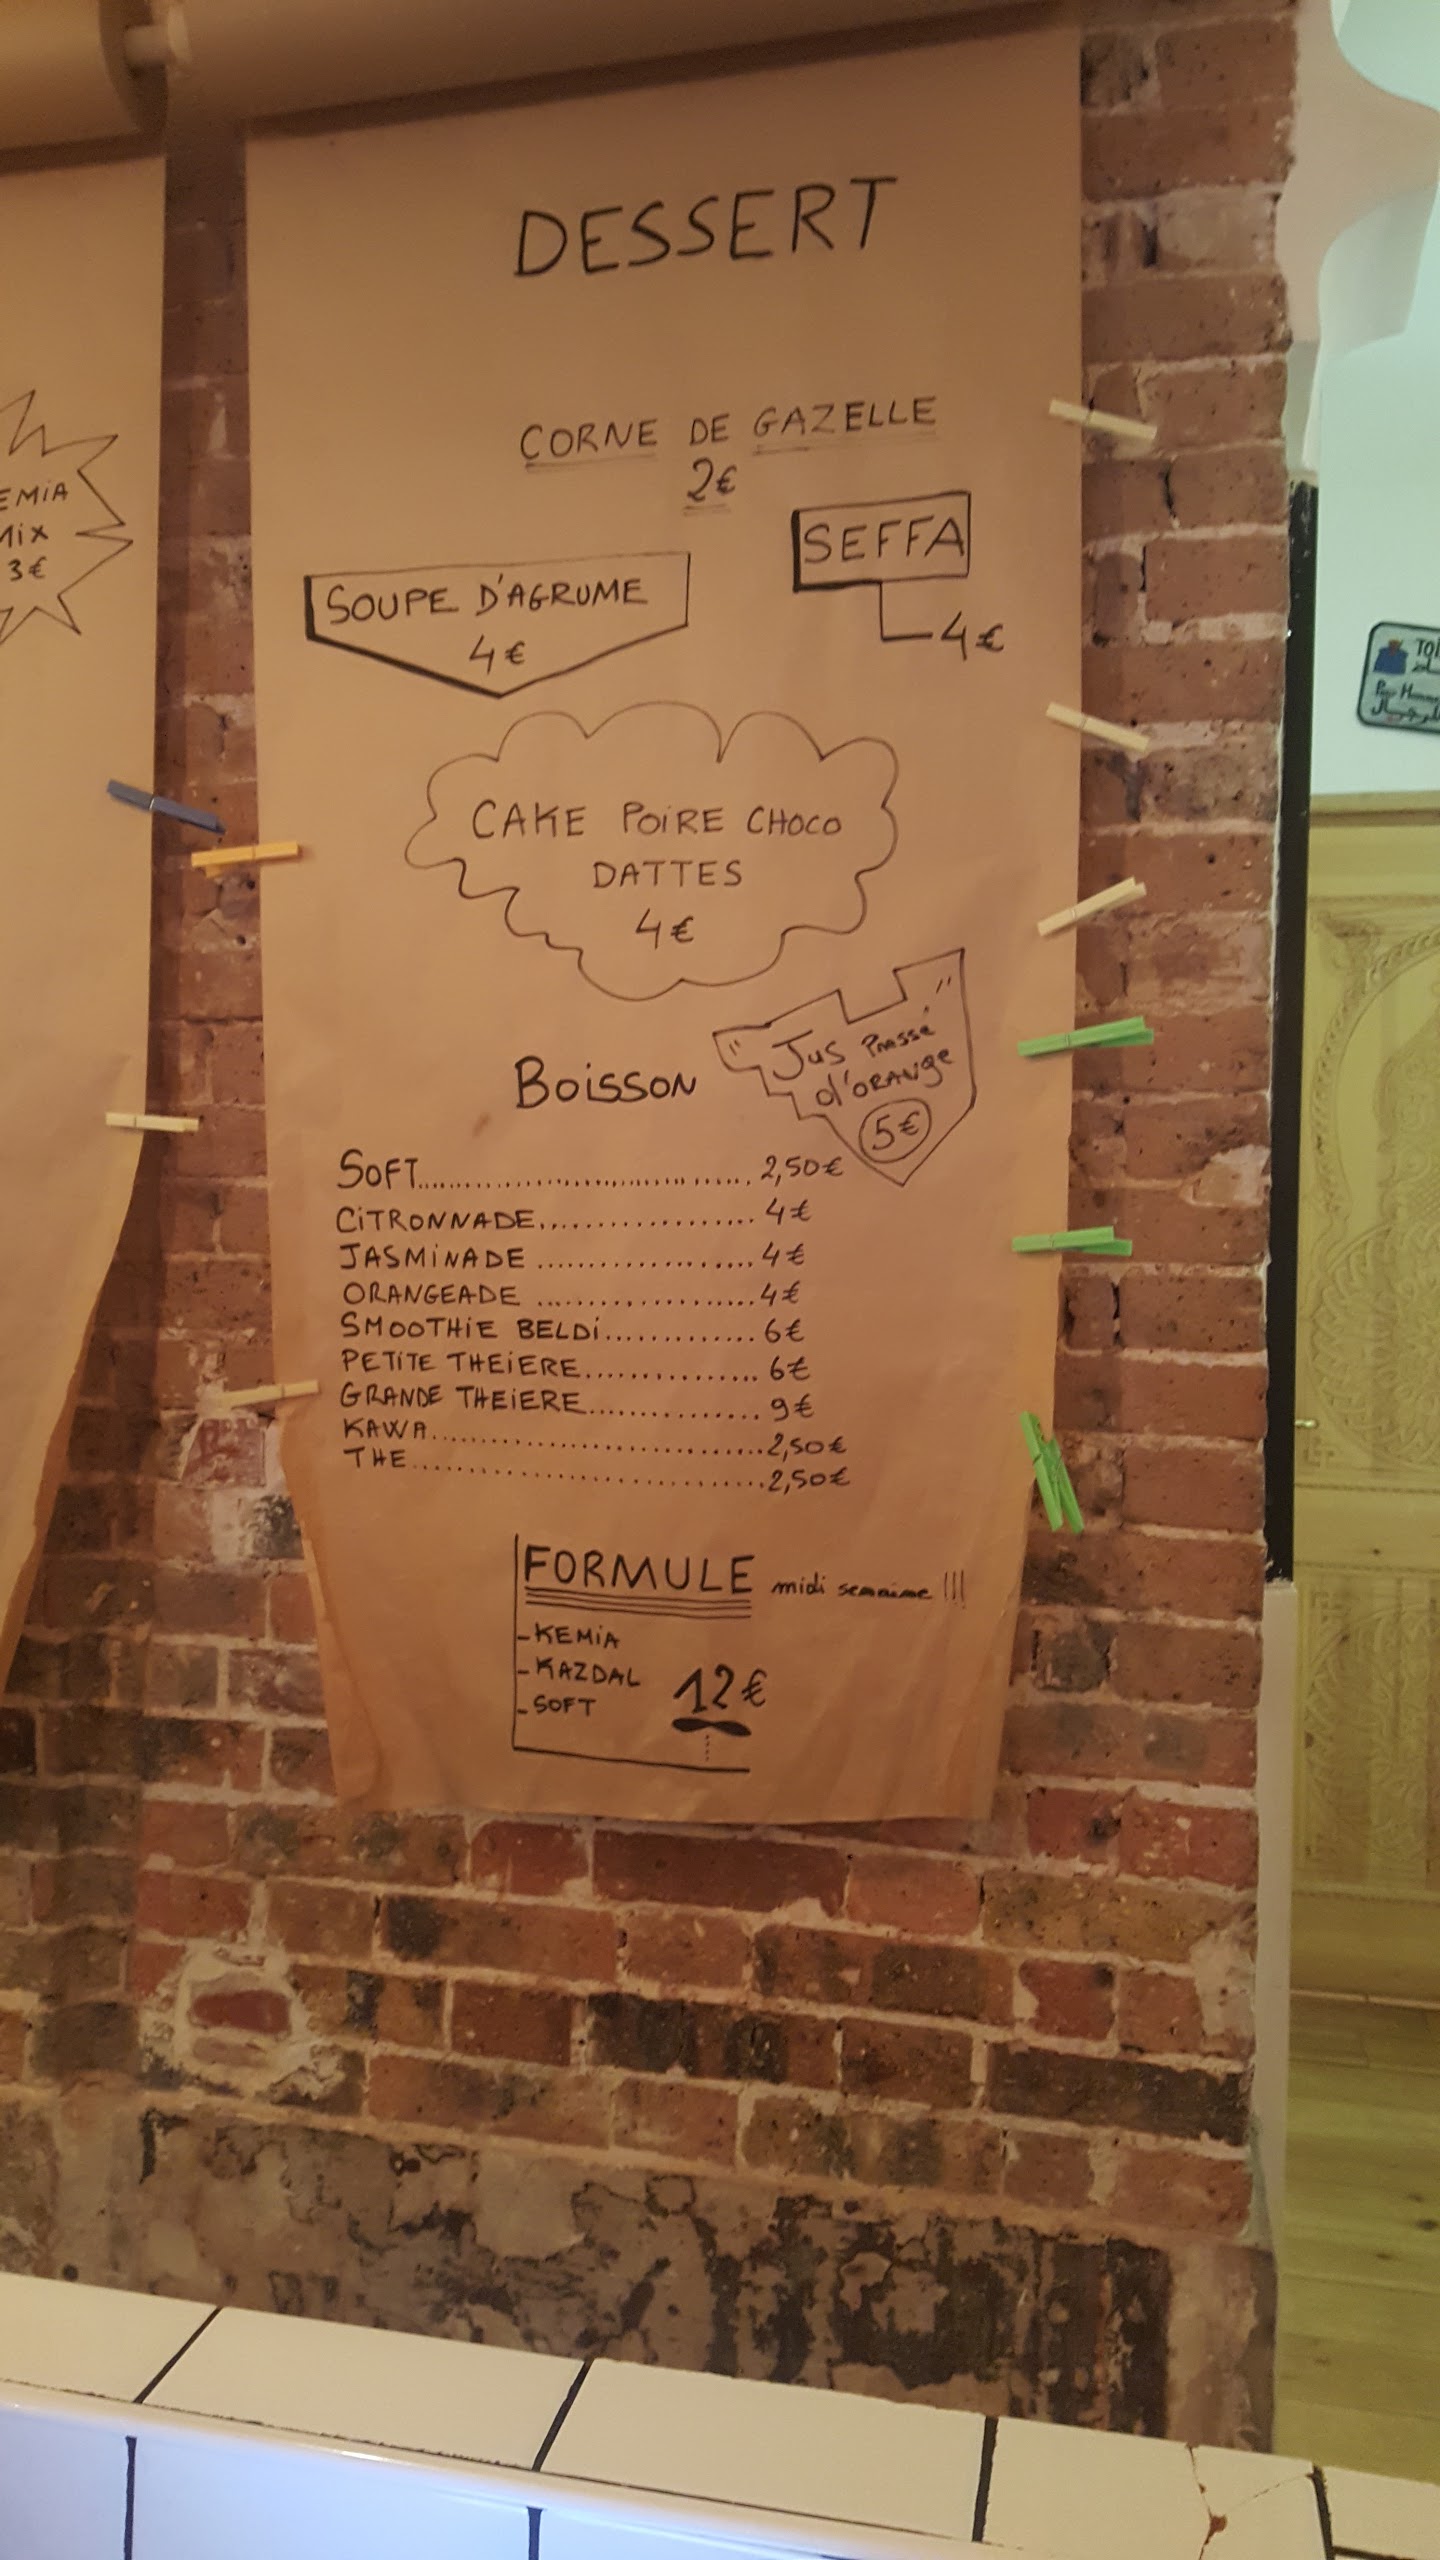 MIX
3€
DESSERT
CORNE DE GAZELLE
2€
SEFFA
4€
SOUPE D'AGRUME
4€
CAKE POIRE CHOCO
DATTES
4€
JUS PRESSÉ
d'ORANGE
5€
BOISSON
SOFT.................................... 2,50€
CITRONNADE.................... 4€
JASMINADE .................... 4€
ORANGEADE .................... 4€
SMOOTHIE BELDI.............. 6€
PETITE THEIERE................ 6€
GRANDE THEIERE............... 9€
KAWA.................................. 2,50€
THE..................................... 2,50€
FORMULE midi semaine !!!
-KEMIA
-KAZDAL
-SOFT
12€